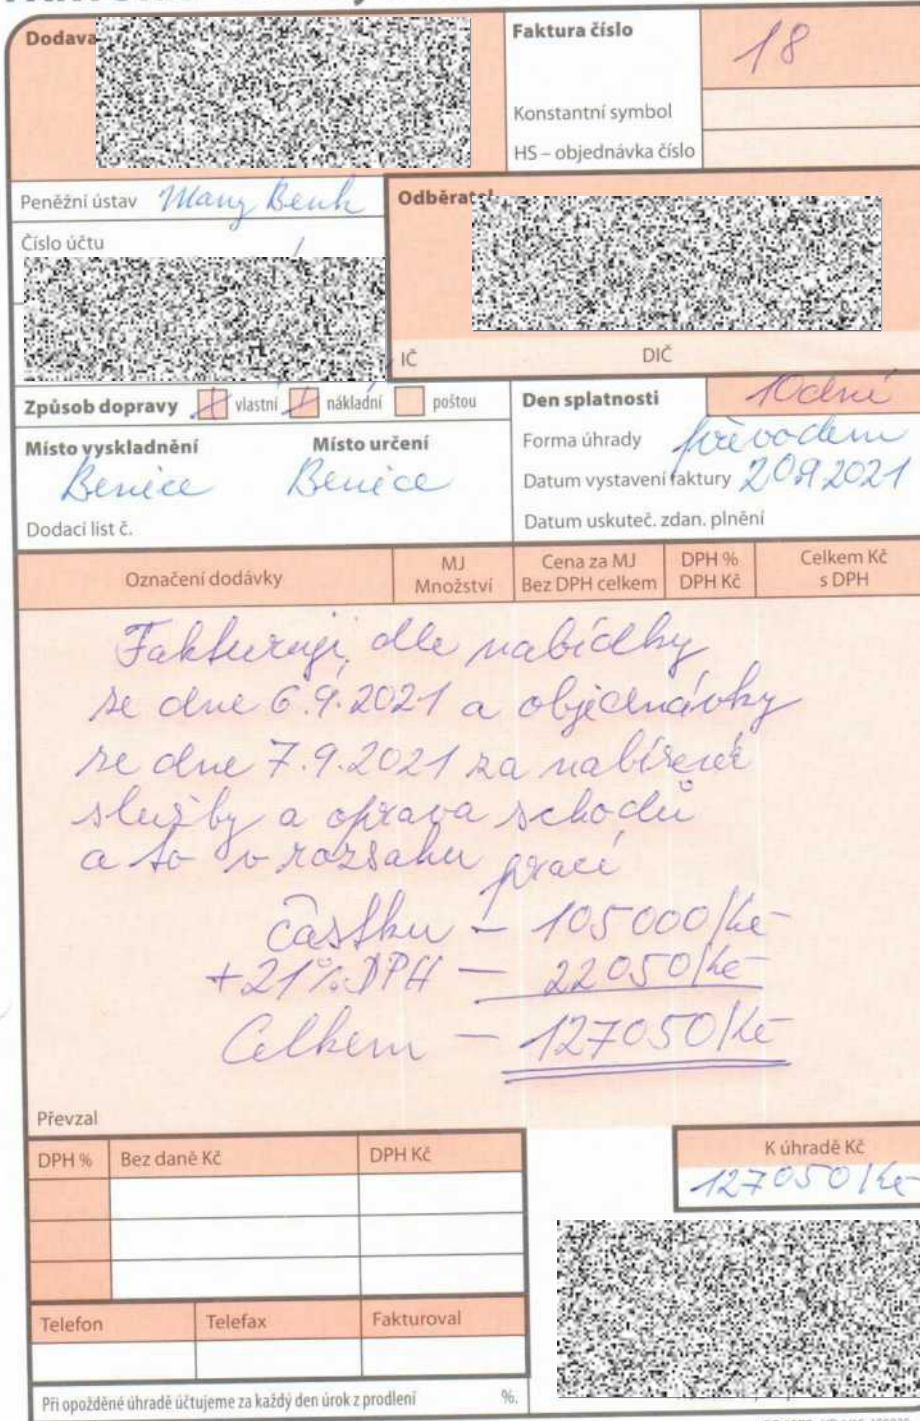 Dodava
Faktura číslo 18
Konstantní symbol
HS – objednávka číslo
Peněžní ústav
Odběratel
Číslo účtu
IČ DIČ
Způsob dopravy vlastní nákladní poštou
Den splatnosti 10dní
Místo vyskladnění Místo určení
Forma úhrady převodem
Benice Benice
Datum vystavení faktury 20.9.2021
Dodací list č.
Datum uskuteč. zdan. plnění
Označení dodávky
MJ
Množství
Cena za MJ
Bez DPH celkem
DPH %
DPH Kč
Celkem Kč
s DPH
Fakturuji dle nabídky
ze dne 6.9.2021 a objednávky
ze dne 7.9.2021 za
služby a oprava schodů
a to v rozsahu prací
částku – 105000/Kč
+21% DPH – 22050/Kč
Celkem – 127050/Kč
Převzal
DPH % Bez daně Kč DPH Kč
K úhradě Kč
127050/Kč
Telefon Telefax Fakturoval
Při opožděné úhradě účtujeme za každý den úrok z prodlení %.